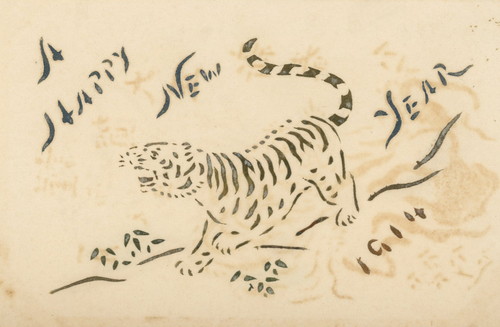 A
HAPPY
NEW
YEAR
1914